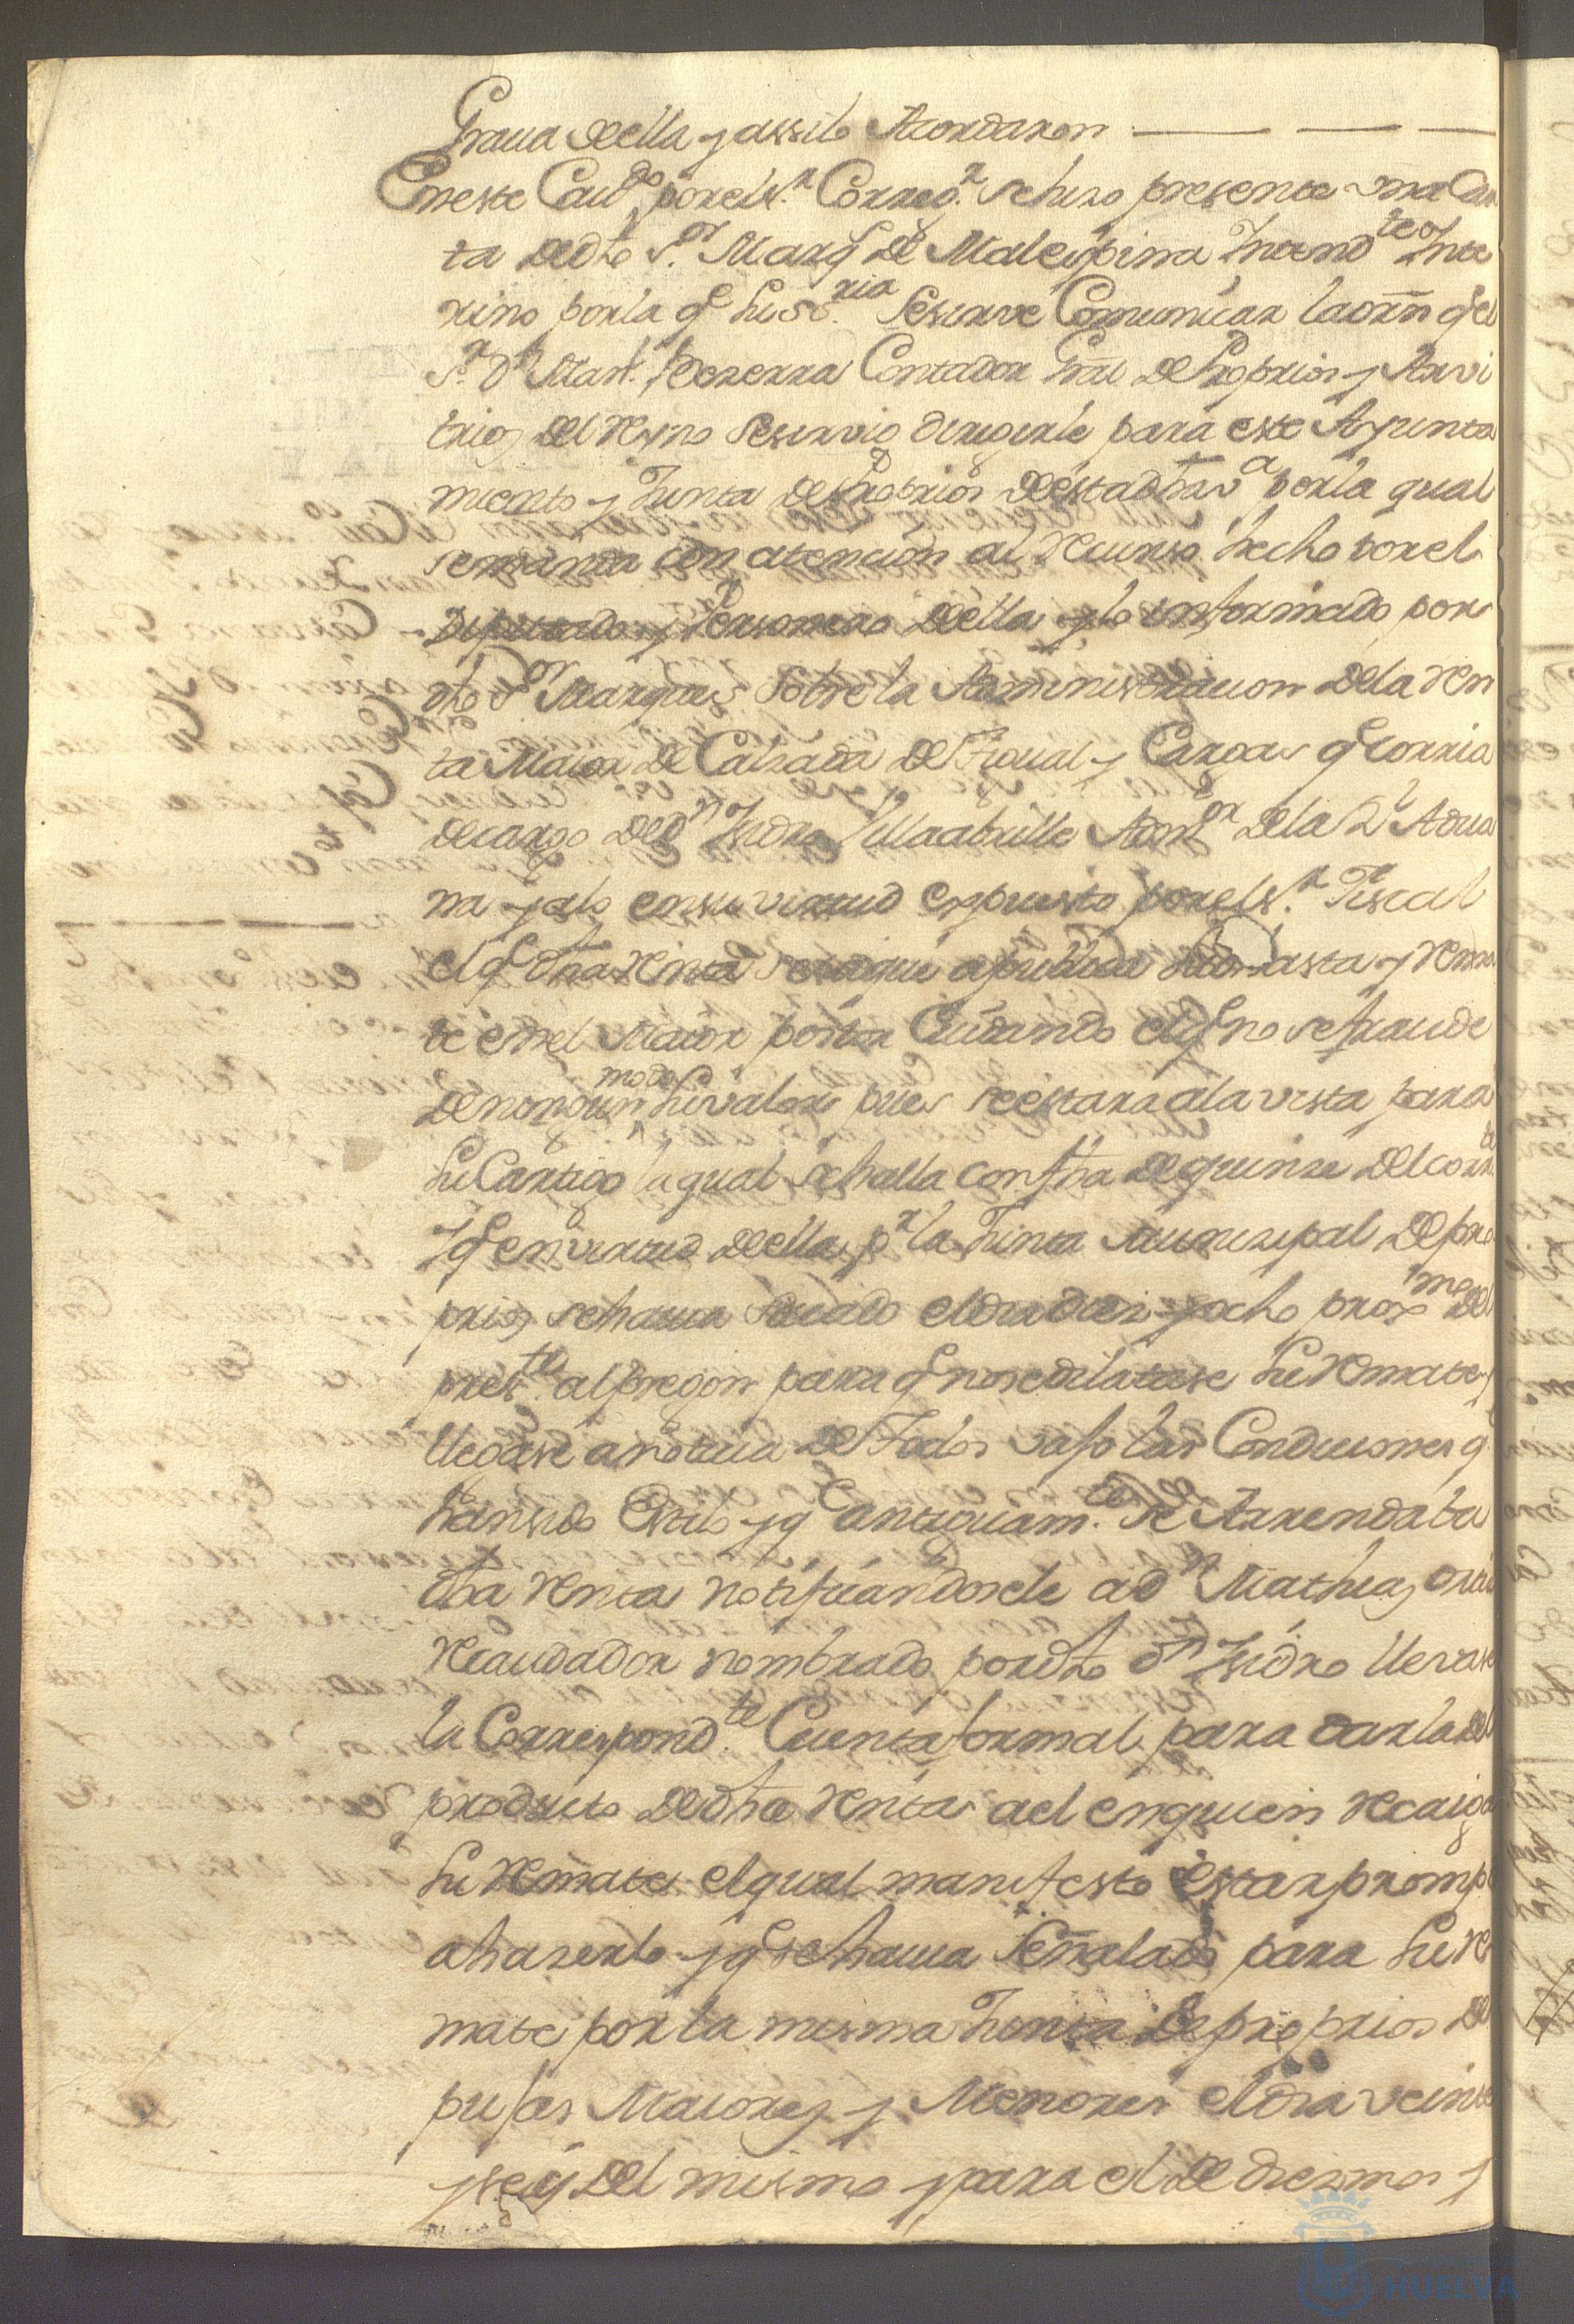 Graua della y assi lo Acordaron
En este Caudo por el Sr. Correg.r se hizo presente vna Car
ta de dho S.or Marqs de Malespina Yntendte Ynte
rino por la q.e Su Sria se sirve Comunicar la orn q.e el
S.r Dn Man.l Bezerra Contador Gral de Proprios y Arvi
trios del Reyno se sirvio dirigirle para este Ayunta
miento y Junta de Proprios de esta dha va por la qual
se manda con atencion al recurso hecho por el
Diputado y Personero della y lo informado por
dho Sor Marques sobre la Administracion de la Ren
ta Maior de Calzada de y Cargas q.e corria
de cargo de dn Ysidro Villaabrille Admor de la Rl Adua
na y a lo en su virtud expuesto por el S.r Fiscal
el q.e dha Renta se saque a publica Subasta y Rema
te en el Maior postor Cuidando el q.e no se fraude
de ningun modo su valor pues se estara a la vista para
su Castigo la qual se halla con fha de quinze del corrte
y q.e en virtud della pr la Junta Municipal de pro
prios se hauia sacado el dia diez y ocho proxmo del
preste al pregon para q.e no se dilatase su Remate y
llegase a noticia de Todos vajo las Condiciones q.e
han sido Estilo y q.e antiguam.te se Arrendaba
dha Renta notificandosele a dn Mathias
Recaudador nombrado por dho dn Ysidro llevase
la Correspond.te Cuenta formal para darla del
producto de dha Rentas a el en quien recaiga
su Remate el qual manifesto estar prompto
a hazerlo y q.e se hauia Señalado para su Re
mate por la misma Junta de proprios de
pujas Maiores y Menores el dia veinte
y seis del mismo y para el de diezmos y
HUELVA